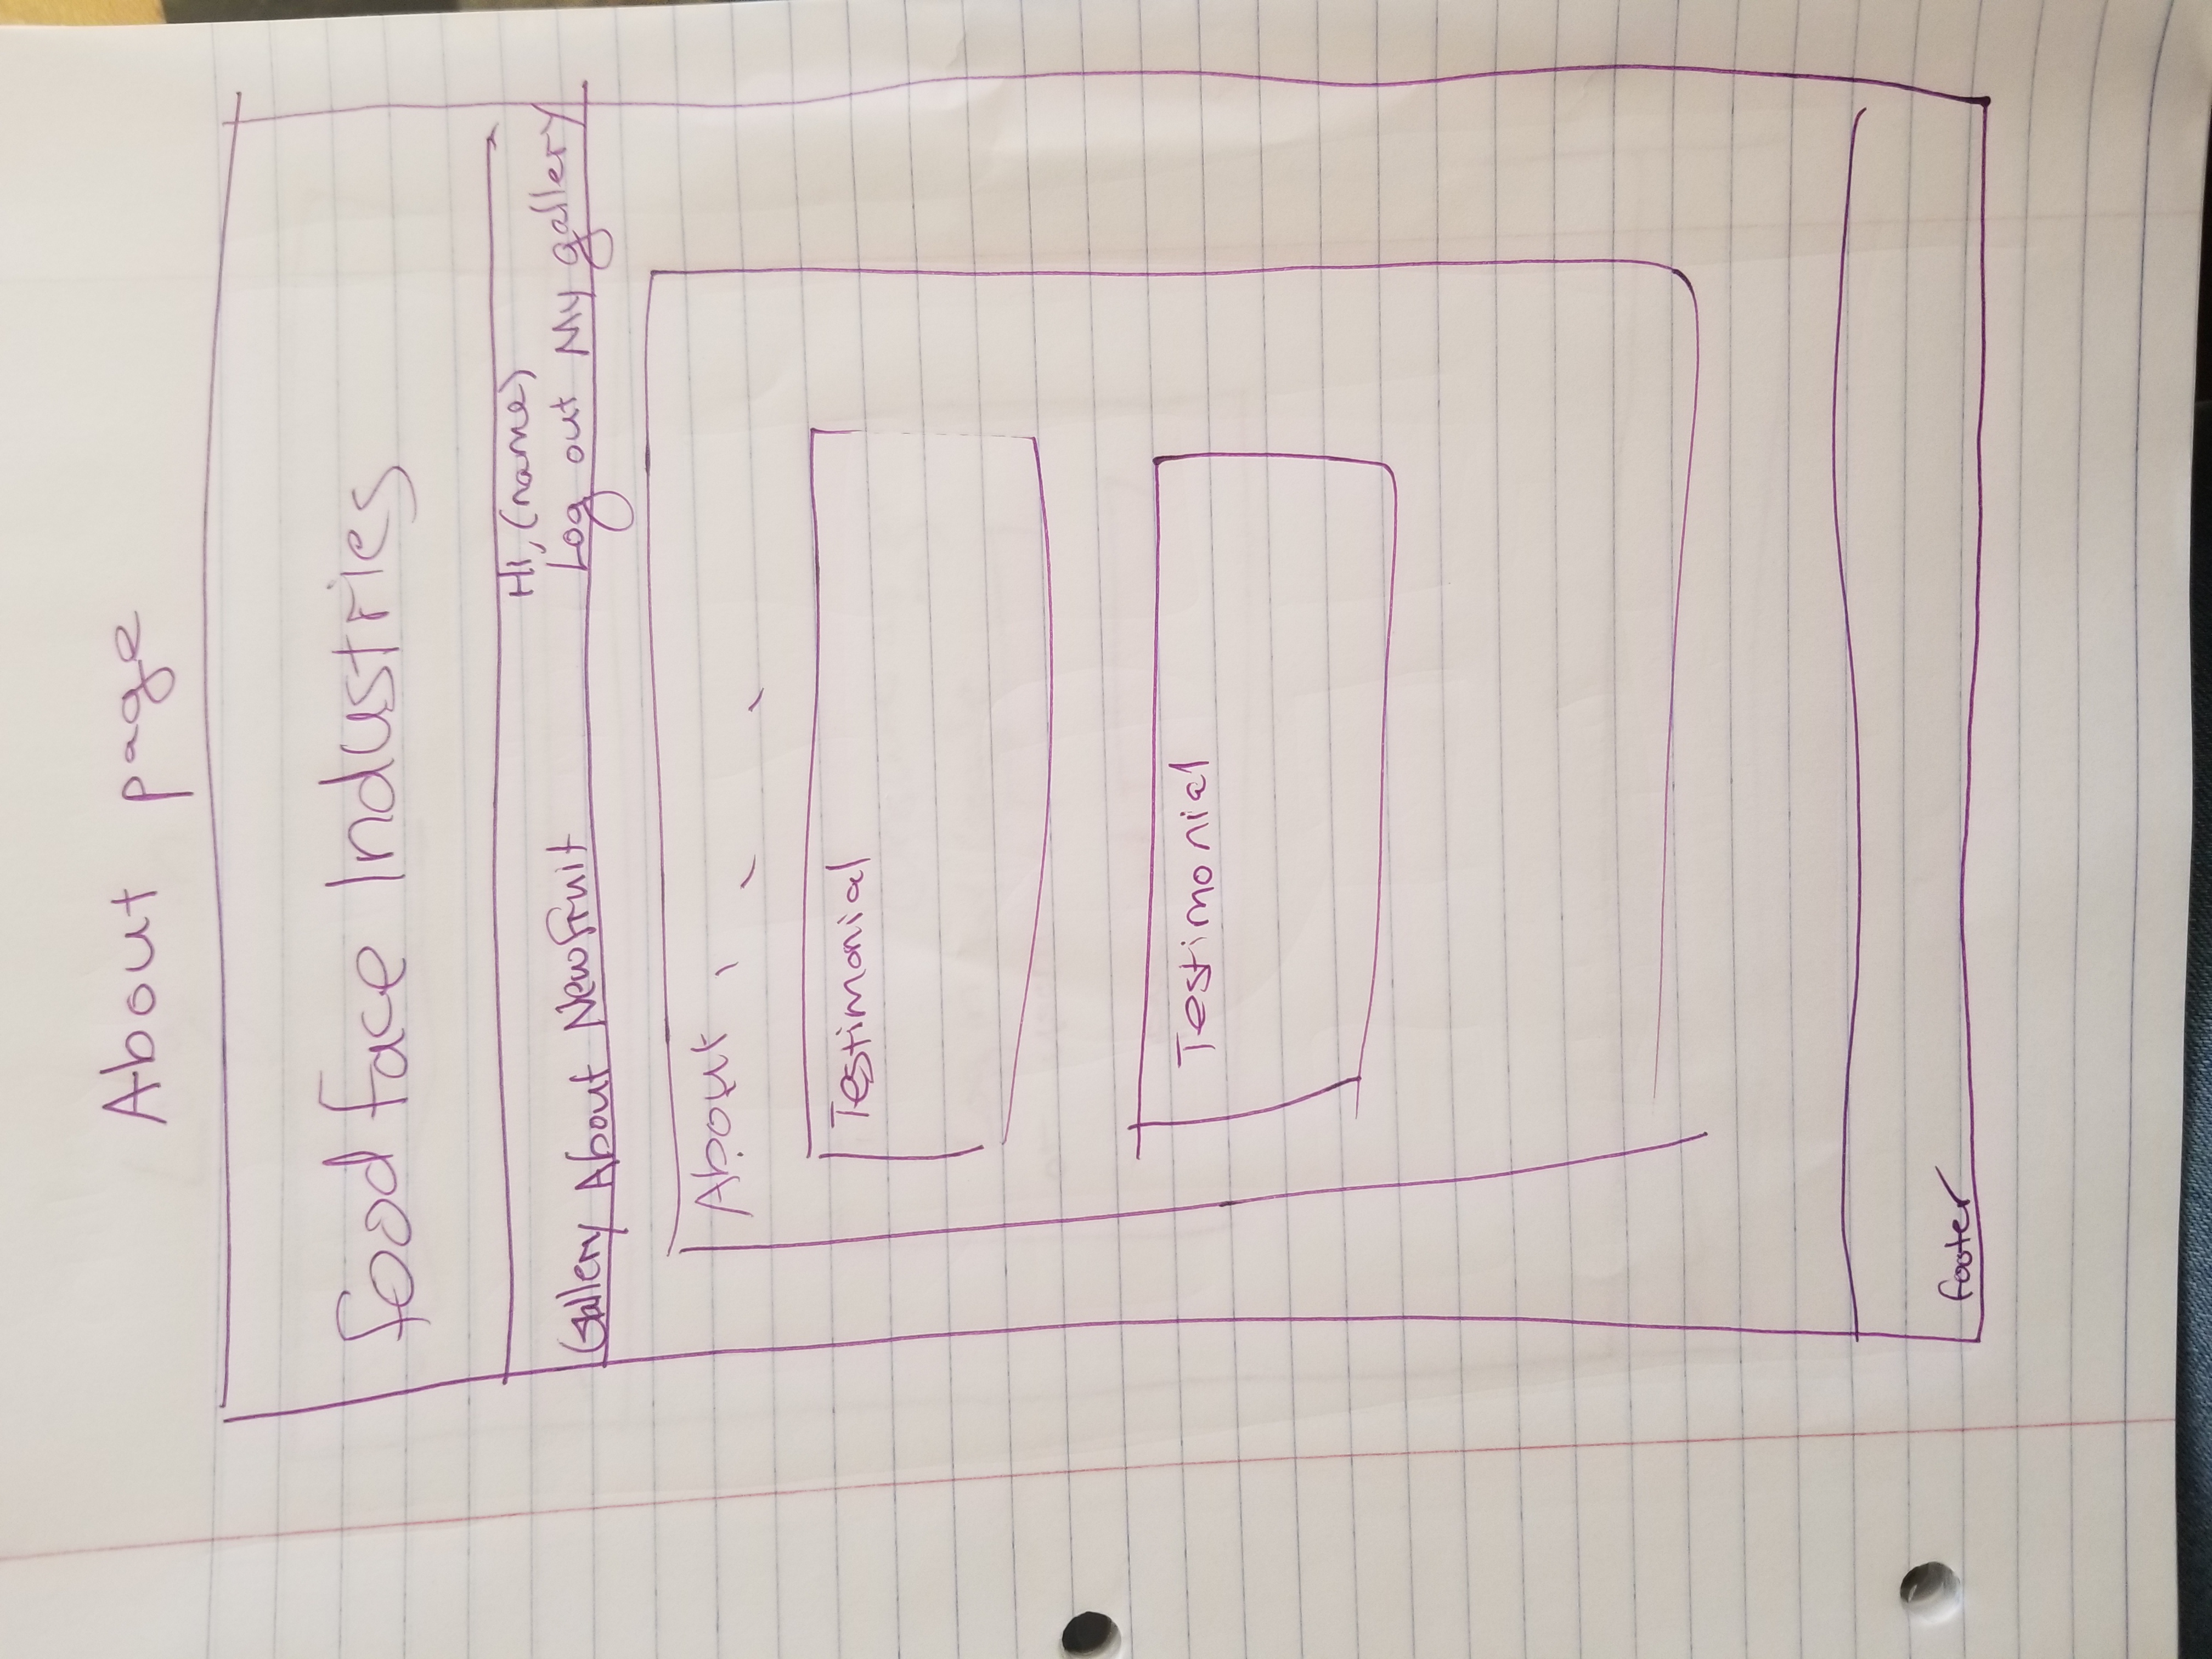 About page
food face Industries
Hi, (name)
Gallery About New Fruit Log out My gallery
About
Testimonial
Testimonial
footer